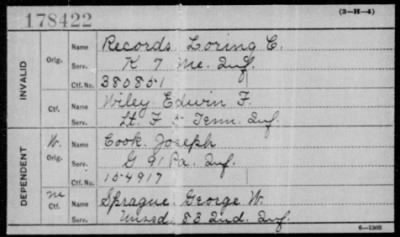 178422
(3-H-4)
INVALID
Orig.
Name Records, Loring C.
Serv. K 7 Me. Inf.
Ctf. No. 380851
Ctf.
Name Wiley Edwin F.
Serv. Lt. F 5 Tenn. Inf.
DEPENDENT
W.
Orig.
Name Cook, Joseph
Serv. G 91 Pa. Inf.
Ctf. No. 154917
m
Ctf.
Name Sprague George W.
Serv. Unasd. 83 Ind. Inf.